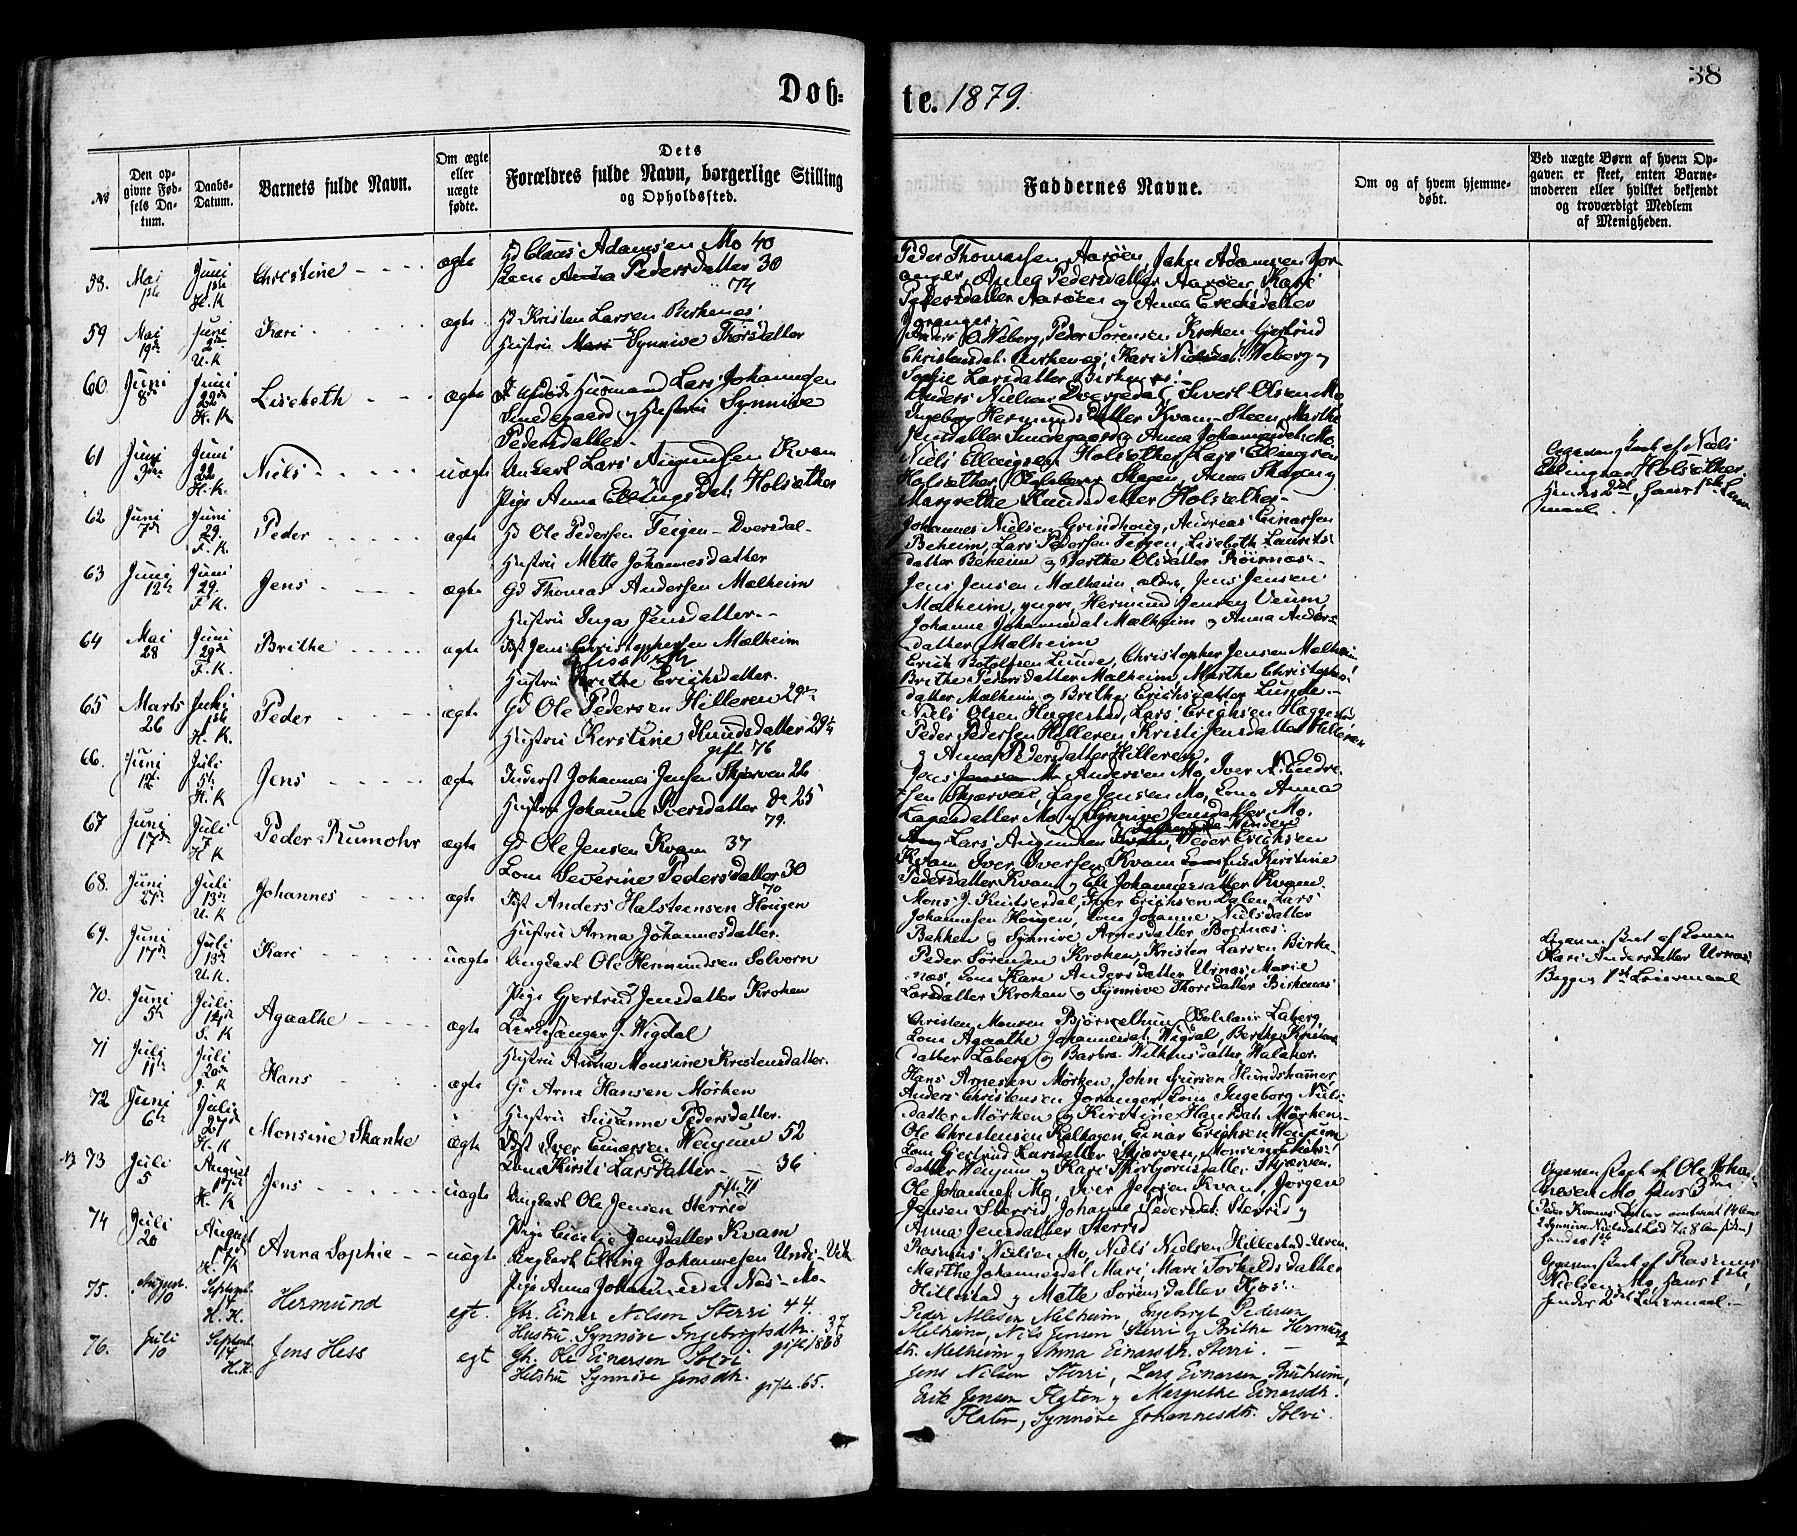 Døb=
te. 1879.
38
No
Den op-
givne Fød-
sels Da-
tum.
Daabs-
Datum.
Barnets fulde Navn.
Om ægte
eller
uægte
fødte.
Dets
Forældres fulde Navn, borgerlige Stilling
og Opholdssted.
Faddernes Navne.
Om og af hvem hjemme-
døbt.
Ved uægte Børn af hvem Op-
gaven er skeet, enten Barne-
moderen eller hvilket bekjendt
og troværdigt Medlem
af Menigheden.
58. Mai 1ste Juni 1ste H.K Christine ægte
Gd Claus Adamsen Mo 40
Lone Anna Pedersdatter 30
74
Peder Thomassen Aarøen, John Adamsen Jor-
anger, Anna Pedersdatter Aarøen, Kari
Pedersdatter Aarøen og Anna Erichsdatter
Joranger.
59 Mai 19de Juni 2den U.K Kari ægte
Gd Kristen Larsen Birkenæs
Hustru Mari Synnive Thorsdatter
Anders O. Weberg, Peder Sørensen Kroken, Gjertrud
Christensdat. Birkenæs, Kari Nielsdat. Weberg og
Sophie Larsdatter Birkenæs.
60 Juni 8de Juni 22de H.K Lisebeth ægte
Husmand Lars Johannesen
Smedegaard og Hustru Synnive
Pedersdatter.
Anders Nielsen Dversdal, Sivert Olsen Mo
Ingeborg Hermundsdatter Kvam-Steen, Marthe
Jensdatter Smedegaard og Anna Johannesdat. Mo.
61 Juni Juni 22 H.K. Niels uægte
Ungkarl Lars Augundsen Kvam
Pige Anna Ellingsdat. Holsæther
Niels Ellingsen Holsæther, Lars Ellingsen
Holsæther, Skagen, Anna Skagen og
Margrethe Knudsdatter Holsæther.
Opgaven skeet af Niels
Ellingsen Holsæther.
Hendes 2det, hans 1ste Leier-
maal.
62 Juni 7de Juni 29. F.K. Peder ægte
Gd Ole Pedersen Teigen - Dversdal -
Hustru Mette Johannesdatter
Johannes Nielsen Grindhoug, Andreas Einarsen
Beheim, Lars Pedersen Teigen, Lisebeth Laurits-
datter Beheim og Berthe Olsdatter Røirnæs.
63 Juni 12te Juni 29. F.K. Jens ægte
Gd Thomas Andersen Mælheim
Hustru Inga Jensdatter
Jens Jensen Mælheim, ældre, Jens Jensen
Mælheim, yngre, Hermund Jensen Veum,
Johanne Johannesdat Mælheim og Anna Anders-
datter Mælheim
64 Mai 28 Juni 29de F.K. Brithe ægte
Pst Jens Christophersen Mælheim
Hustru Brithe Erichsdatter.
Erich Botolfsen Lunde, Christopher Jensen Mælheim
Brithe Pedersdatter Mælheim, Marthe Christophers-
datter Mælheim og Brithe Erichsdatter Lunde.
65 Marts 26 Juli 1ste H.K. Peder ægte
Gd Ole Pedersen Hilleren 29
Hustru Kerstine Knudsdatter 29
gift 76
Niels Olsen Hæggestad, Lars Erichsen Hæggestad
Peder Pedersen Hilleren, Kristi Jensdatter Hilleren
og Anna Pedersdatter Hilleren.
66. Juni 12te Juli 5te H.K Jens ægte
Inderst Johannes Jensen Skjerven 26
Hustru Johanne Iversdatter do 25
79.
Jens Andersen Mo, Iver A. Endre-
sen Skjerven, Lage Jensen Mo, Lone Anna
Lagesdatter Mo og Synnive Jensdatter Mo.
67 Juni 17de Juli 7 H.K Peder Rumohr ægte
Gd Ole Jensen Kvam 37
Lone Severine Pedersdatter 30
70
Lars Augundsen Kvam, Peder Erichsen
Kvam, Iver Iversen Kvam Kirstine
Pedersdatter Kvam og Eli Johannesdatter Kvam.
68. Juni 27de Juli 13de U.K Johannes ægte
Pst Anders Halsteensen Hougen
Hustru Anna Johannesdatter.
Mons J. Knitserdal, Iver Erichsen Dalen, Lars
Johannesen Hougen, Lone Johanne Nielsdatter
Bakken og Synnive Arnesdatter Bortnæs.
69. Juni 17de Juli 13de U.K. Kari uægte
Ungkarl Ole Hermundsen Solvorn
Pige Gjertrud Jensdatter Kroken
Peder Sørensen Kroken, Kristen Larsen Birke-
næs, Lone Kari Andersdatter Urnæs, Marie
Larsdatter Kroken og Synnive Thorsdatter Birkenæs
Opgaven skeet af Lonen
Kari Andersdatter Urnæs
Begges 1ste Leiermaal
70. Juni 5te Juli F.K Agaathe ægte
Kirkesanger J. Wigdal
Hustru Anna Monsine Kristensdatter.
Christen Monsen Bjørsethun, Laberg
Lone Agaathe Johannesdat. Wigdal, Berthe Kristens-
datter Laberg og Barbra Wilhelmsdatter Halaker.
71 Juli 11te Juli 20de J.K Hans ægte
Gd Arne Hansen Mørken
Hustru Susanne Pedersdatter.
Hans Arnesen Mørken, John Sjursen Hundshammer,
Anders Christensen Joranger, Lone Ingeborg Niels-
datter Mørken og Kirstine Hansdat. Mørken.
72 Juni 6te Juli 27de H.K Monsine Skanke ægte
Pst Iver Einarsen Wengum 52
Lone Kirsti Larsdatter 36
gift 71
Ole Christensen Kalhagen, Einar Erichsen Wengum
Lone Gjertrud Larsdatter Skjerven, Monsine Eriks-
datter Wengum og Kari Thorbjørnsdatter Skjerven.
73 Juli 5 August 17de H.K Jens uægte
Ungkarl Ole Jensen Sterrid
Pige Cecilie Jensdatter Kvam
Ole Johannes. Mo, Iver Jensen Kvam, Jørgen
Jensen Sterrid, Johanne Pedersdat. Sterrid og
Anna Jensdatter Sterrid
Opgaven skeet af Ole Johan-
nesen Mo, hans 3die
hendes 1ste
74 Juli 20 August 17de H.K Anna Sophie uægte
Ungkarl Elling Johannesen Undi - Vik
Pige Anna Johannesdat Næs - Mo -
Rasmus Nielsen Mo, Niels Nielsen Hillestad-Uren,
Marthe Johannesdat Mari Torkildsdatter
Hillestad og Mette Sørensdatter Kjos.
Opgaven skeet af Rasmus
Nielsen Mo, hans 1ste,
hendes 2det Leiermaal.
75. August 10 Septbr 14 H.K. Hermund egt.
Gb. Einar Nilsen Sterri 44.
Hustru Synnøve Ingebrigtsdtr. 37
gift 1868
Peder Nilsen Melheim, Ingebrigt Pedersen
Melheim, Nils Jensen Sterri og Brithe Hermunds
dtr. Melheim og Anna Einarsdtr. Sterri.
76. Juli 10 Septembr 14 H.K. Jens Hess egt
Gb. Ole Einarsen Solvi
Hustru Synnøve Jensdtr.
gift. 65.
Jens Nilsen Sterri, Lars Einarsen Bruheim,
Erik Jensen Flaten og Margrethe Einarsdtr.
Flaten, Synnøve Johannesdtr. Solvi.